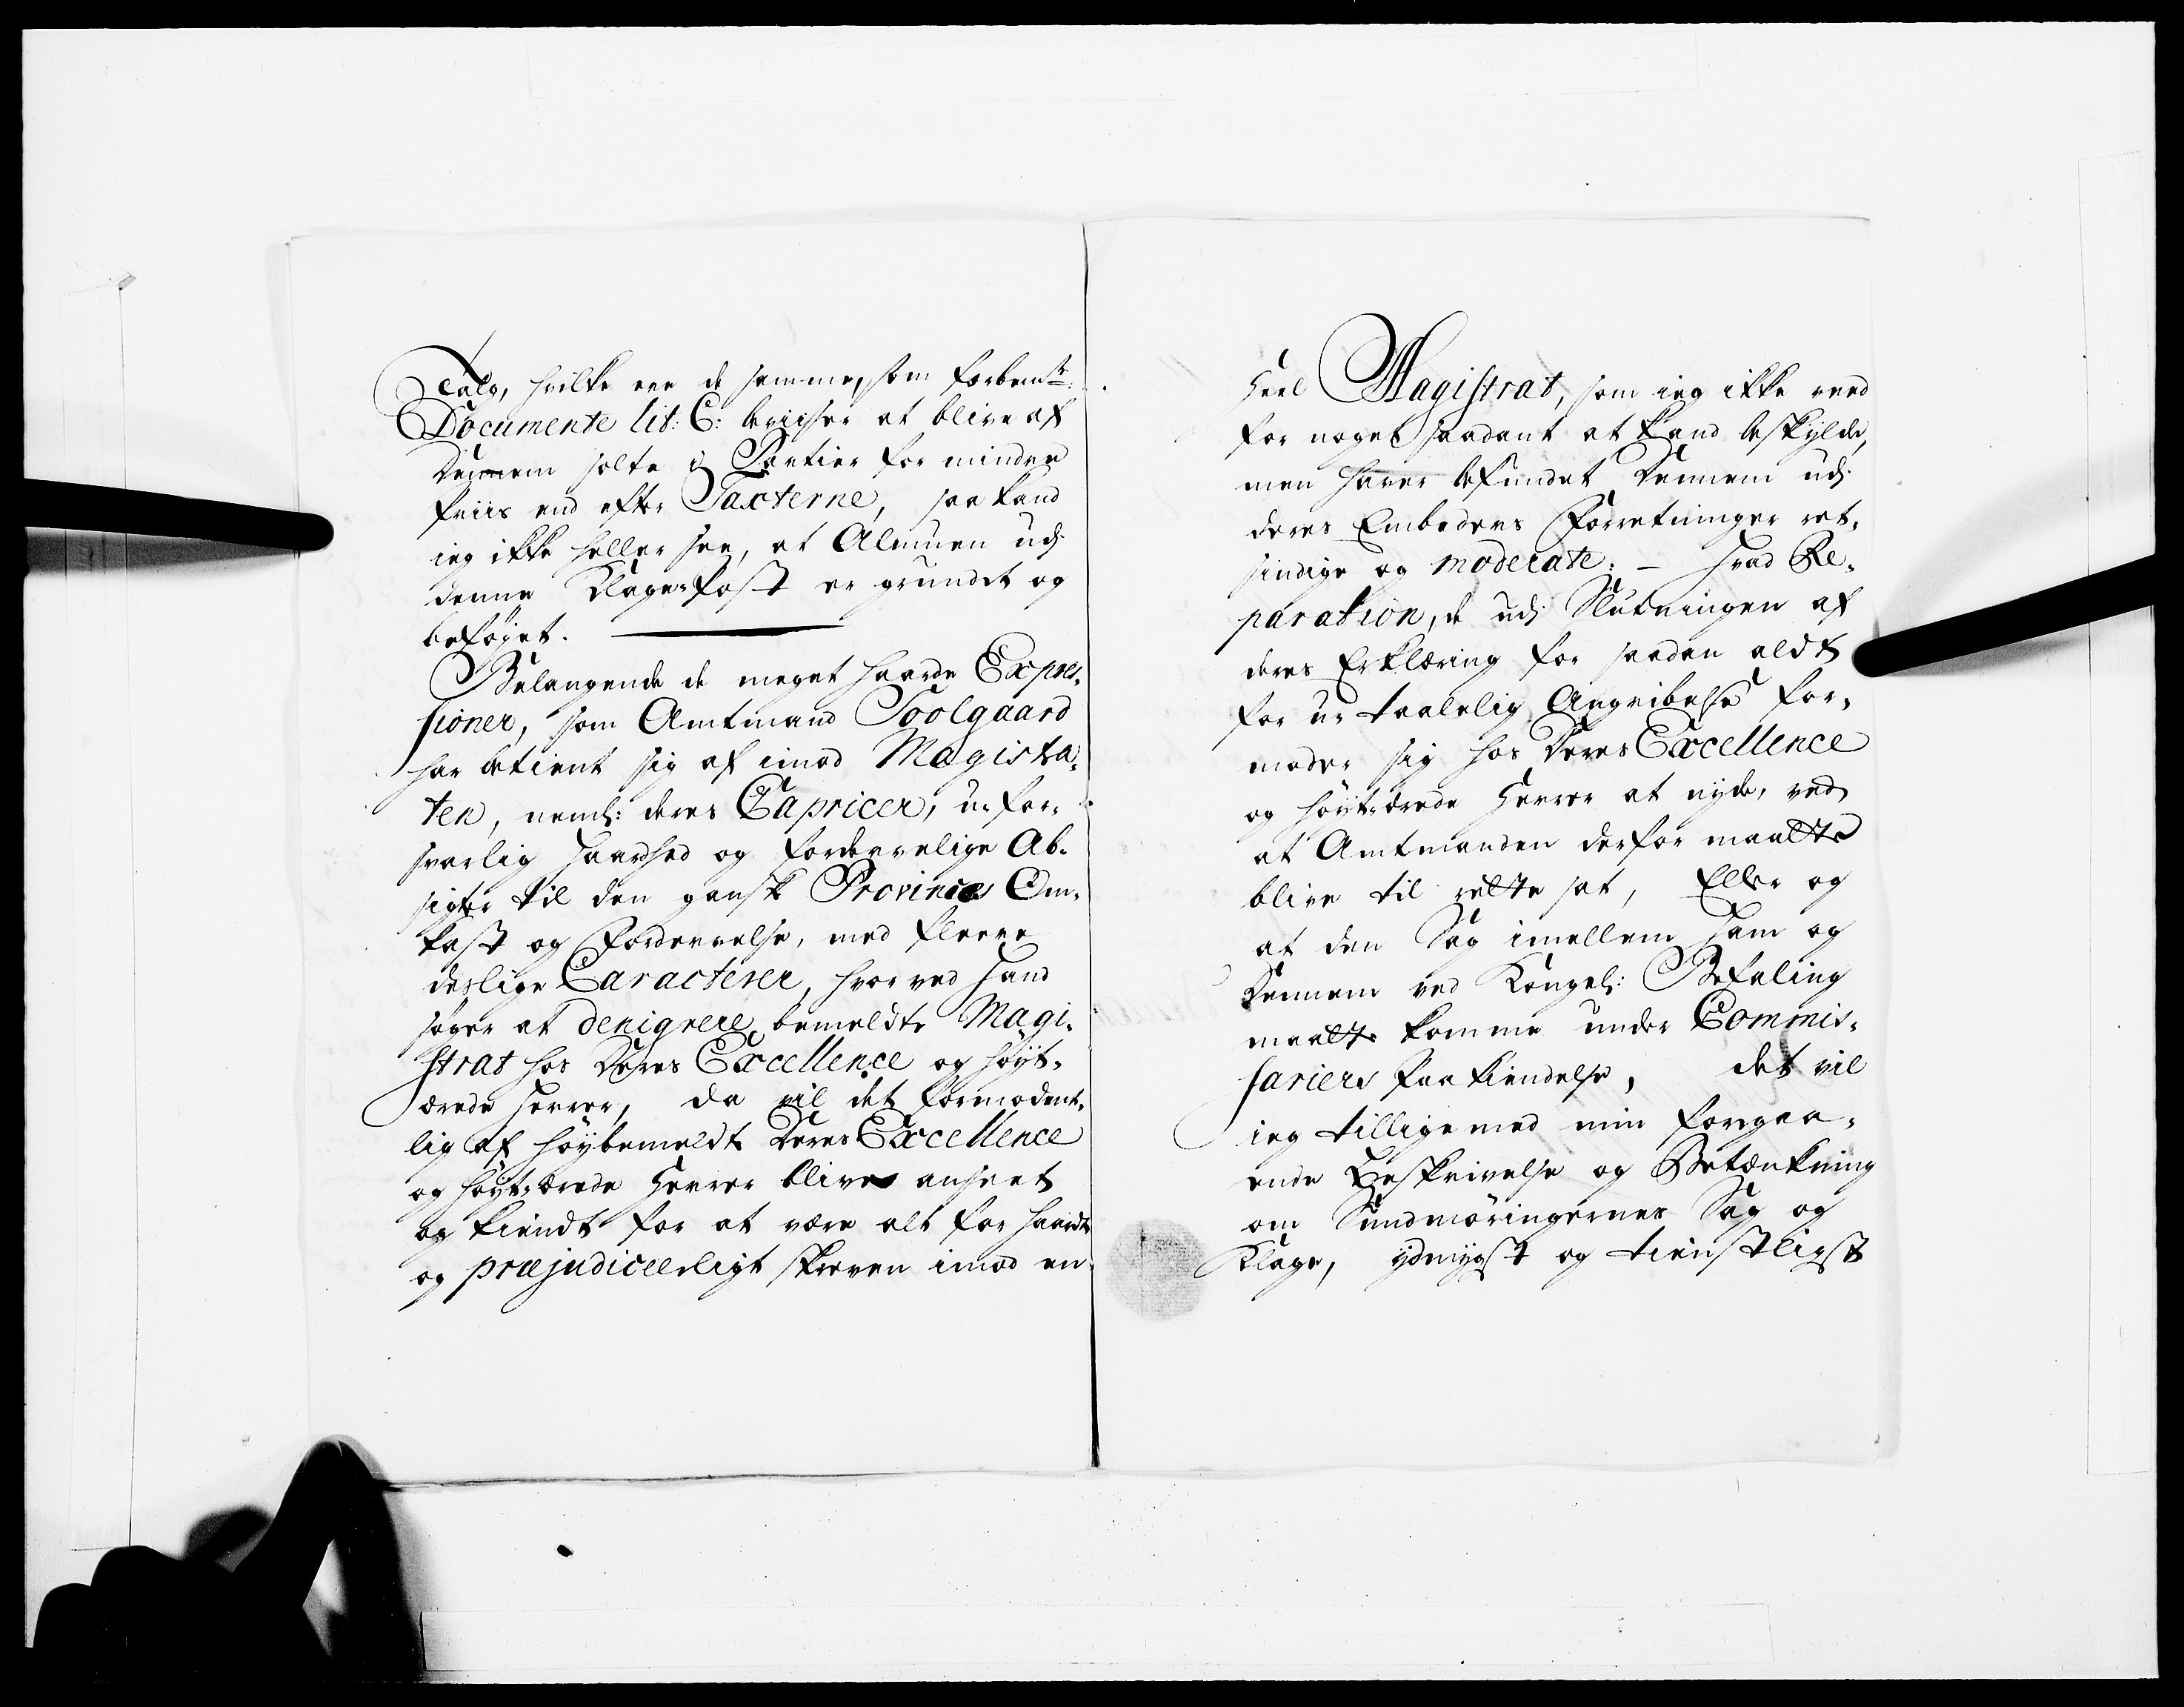 Talg, hvilke ere de samme, som forbemte:
Documente lit: C: beviiser at blive af
Dennem solte i Partier for mindre
Priis end efter Taxterne, saa kand
ieg ikke heller see, at Almuen udj
denne Klage-Post er grundet og
beføyet.
Belangende de meget haarde Expres-
sioner, som Amtmand Soolgaard
har betient sig af imod Magistra-
ten, neml: deres Capricer, u-for-
svarlig Haardhed og fordervelige Ab-
sigter til den gansk Provinces Om-
kast og Fordervelse, med fleere
deslige Caracterer, hvorved Hand
søger at denigrere bemeldte Magi-
strat hos Deres Excellence og Høyt-
ærede Herrer, da vil det formodent-
lig af høybemeldte Deres Excellence
og Høyt-ærede Herrer blive anseet
og kiendt for at være alt for haardt
og præjudiceerligt skreven imod en
Heel Magistrat, som ieg ikke veed
for noget saadant at kand beskylde,
men haver befundet Dennem udj
deres Embeders Forretninger ret-
sindige og moderate: - Hvad Re-
paration, de udj Slutningen af
deres Erklæring for saadan aldt
for u-taalelig Angribelse for-
moder sig hos Deres Excellence
og Høyt-ærede Herrer at nyde, ved
at Amtmanden derfor maatte
blive til rette sat, Eller og
at den Sag imellem Ham og
Dennem ved Kongel: Befaling
maatte komme under Commis-
sariers Paakiendelse, det vil
ieg tillige med min foregaa-
ende Beskrivelse og Betænkning
om Sundmøringernes Sag og
Klage, ydmygst og tienstligst